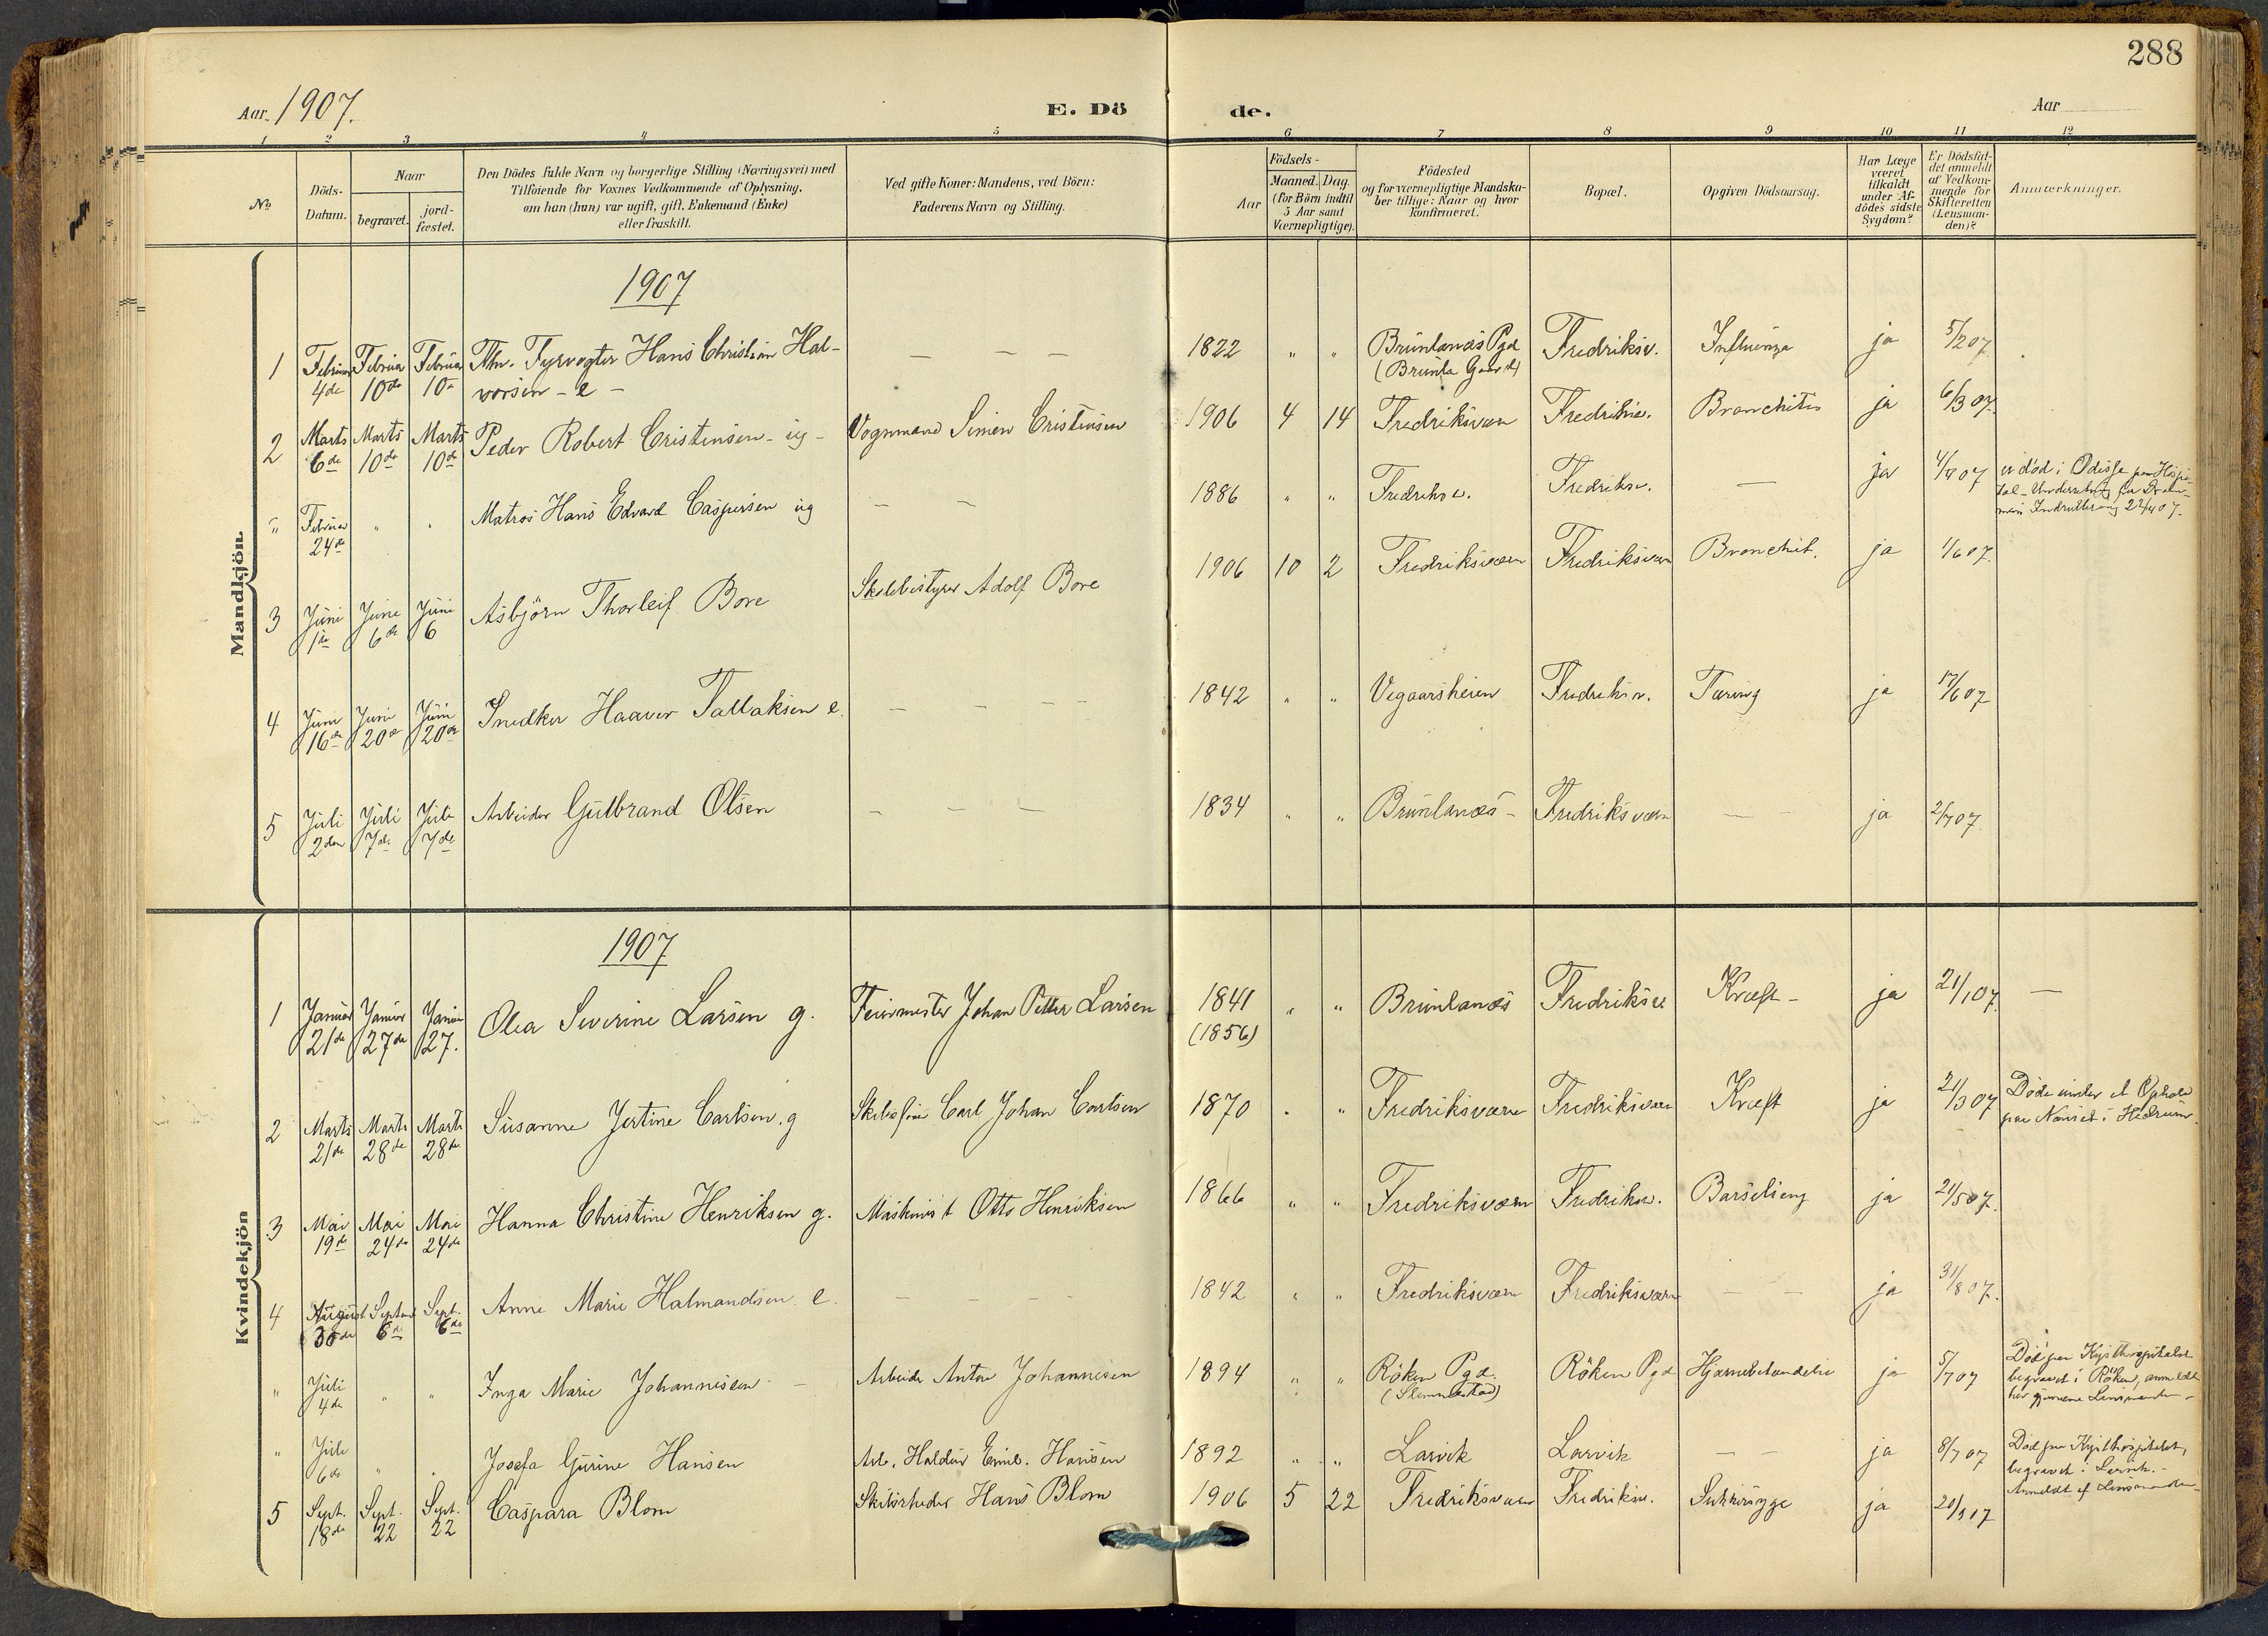 288
Aar 1907.
E. Dö
de.
Aar
1 2 3 4 5 6 7 8 9 10 11 12
No
Döds-
Datum.
Naar
begravet.
jord-
fæstet.
Den Dödes fulde Navn og borgerlige Stilling (Næringsvei) med
Tilföiende for Voxnes Vedkommende af Oplysning,
om han (hun) var ugift, gift, Enkemand (Enke)
eller fraskilt.
Ved gifte Koner: Mandens, ved Börn:
Faderens Navn og Stilling.
Födsels-
Aar
Maaned. Dag.
(for Börn indtil
5 Aar samt
Værnepligtige).
Födested
og for værnepligtige Mandska-
ber tillige: Naar og hvor
konfirmeret.
Bopæl.
Opgiven Dödsaarsag.
Har Læge
været
tilkaldt
under Af-
dödes sidste
Sygdom?
Er Dödsfal-
det anmeldt
af Vedkom-
mende for
Skifteretten
(Lensman-
den)?
Anmærkninger.
Mandkjön.
1907
1 Februar 4de Februar 10de Februar 10de Fhv. Fyrvogter Hans Christian Hal-
vorsen - e - — — — 1822 " " Brunlanæs Pgd (Brunla Gaard) Fredriksv. Influenza ja 5/2 07
2 Marts 6de Marts 10de Marts 10de Peder Robert Cristensen - ug - Vognmand Simen Cristensen 1906 4 14 Fredriksværn Fredriksv. Bronchitis ja 6/3 07
" Februar 24de " " Matros Hans Edvard Caspersen ug — — 1886 " " Fredriksv. Fredriksv. — ja 4/4 07 er död i Odessa paa Hospi-
tal - Underretning fra
Indrullering 22/4 07.
3 Juni 1de Juni 6de Juni 6 Asbjörn Thorleif Bore Skolebestyrer Adolf Bore 1906 10 2 Fredriksværn Fredriksværn Bronchit. ja 1/6 07
4 Juni 16de Juni 20de Juni 20de Snedker Haaver Tallaksen e. — — — — 1842 " " Vegaarsheien Fredriksv. Tæring ja 17/6 07
5 Juli 2den Juli 7de Juli 7de Arbeider Gulbrand Olsen — — — 1834 " " Brunlanæs - Fredriksværn — — ja 2/7 07
Kvindekjön
1907
1 Januar 21de Januar 27de Januar 27. Olea Severine Larsen g. Feiermester Johan Petter Larsen 1841 (1856) " " Brunlanæs Fredriksv Kræft - ja 21/1 07. —
2 Marts 21de Marts 28de Marts 28de Susanne Jertine Carlsen. g Carl Johan Carlsen 1870 " " Fredriksværn Fredriksværn Kræft ja 21/3 07 Döde under et Ophold
paa Nanset i Hedrum.
3 Mai 19de Mai 24de Mai 24de Hanna Christine Henriksen g. Maskinist Otto Henriksen 1866 " " Fredriksværn Fredriksv. Barselseng ja 21/5 07.
4 August 30de Septembr 6de Sept. 6de Anne Marie Halmandsen e. — — — — 1842 " " Fredriksværn Fredriksværn — — ja 31/8 07.
" Juli 4de " " Inga Marie Johannesen — Arbeider Anton Johannesen 1894 " " Röken Pgd. (Slemmestad) Röken Pgd Hjernebetændelse ja 5/7 07 Död paa Kysthospitalet
begravet i Röken, anmeldt
her gjennem Lensmanden -
" Juli 6de " " Josefa Gurine Hansen Arb. Haldur Emil. Hansen 1892 " " Larvik Larvik — — ja 8/7 07 Död paa Kysthospitalet,
begravet i Larvik. -
Anmeldt af Lensmanden -
5 Sept. 18de Sept. 22 Sept. 22 Caspara Blom Skibsrheder Hans Blom 1906 5 22 Fredriksværn Fredriksv. Sukkersyge ja 20/9 07